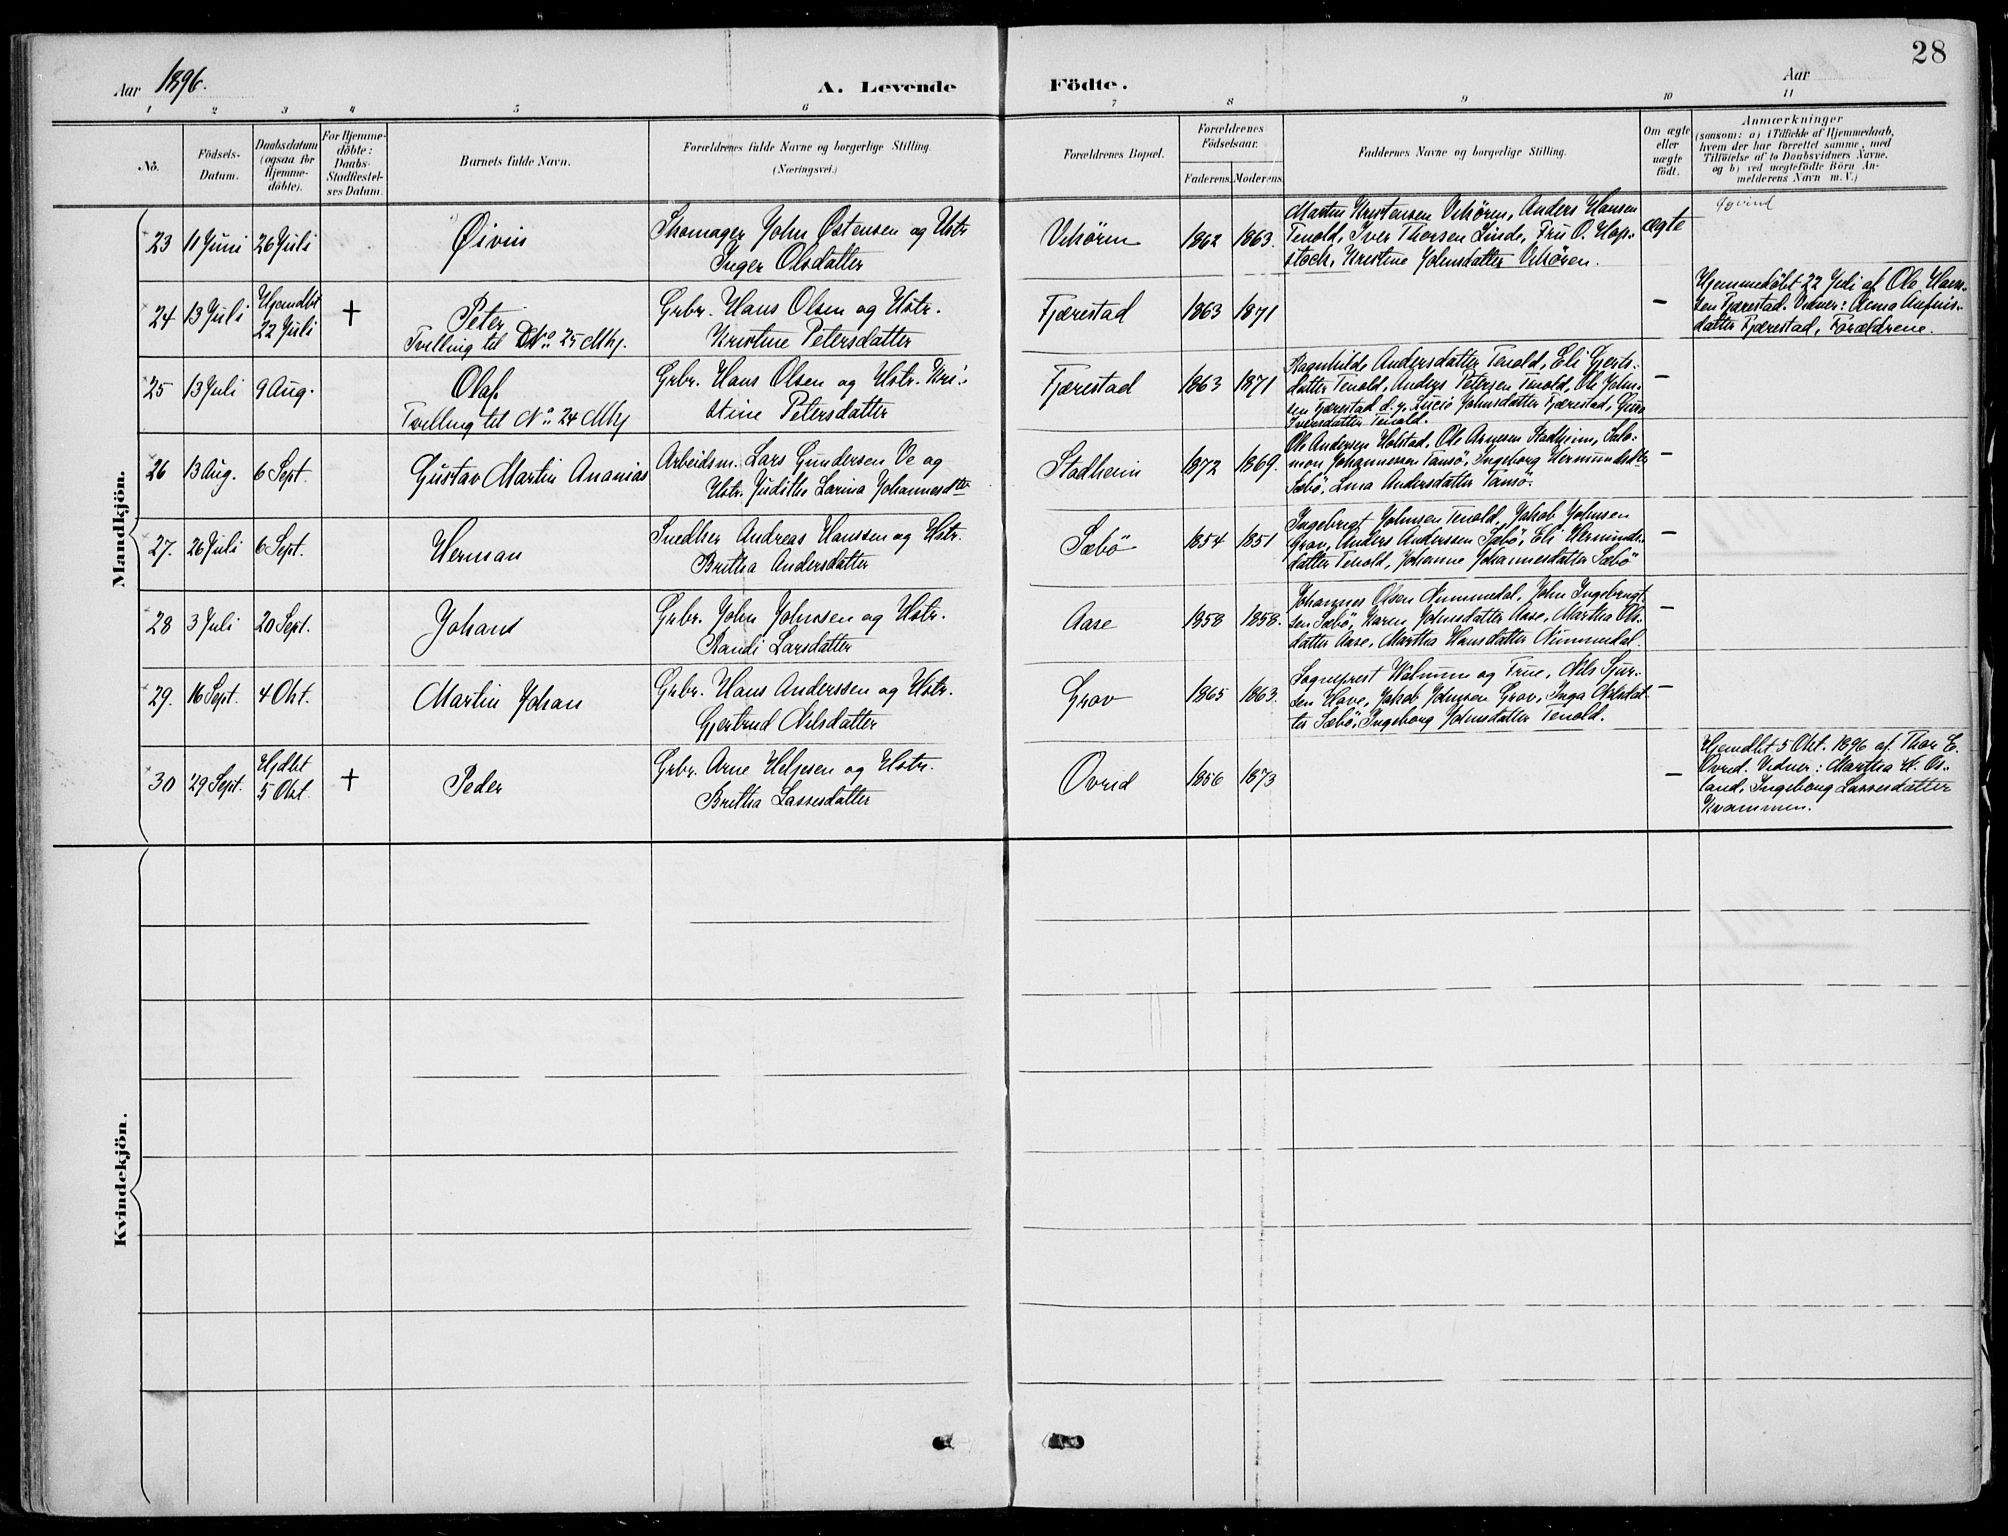 28
Aar 1896.
A. Levende Födte.
Aar
1 2 3 4 5 6 7 8 9 10 11
No.
Födsels-Datum.
Daabsdatum (ogsaa for Hjemme-döbte).
For Hjemme-döbte: Daabs-Stadfæstel-ses Datum.
Barnets fulde Navn.
Forældrenes fulde Navne og borgerlige Stilling.
(Næringsvei.)
Forældrenes Bopæl.
Forældrenes Födselsaar.
Faderens. Moderens.
Faddernes Navne og borgerlige Stilling.
Om ægte eller uægte födt.
Anmærkninger
(saasom: a) i Tilfælde af Hjemmedaab,
hvem der har forrettet samme, med
Tilföielse af to Daabsvidners Navne,
og b) ved uægtefödte Börn An-
melderens Navn m. V.)
Mandkjön.
23 11 Juni 26 Juli Øivin
Skomager John Østensen og Hstr
Inger Olsdatter
Vikören 1862 1863.
Martin Kristensen Vikören, Anders Hansen
Tenold, Iver Thorsen Linde, Fru O. Hop-
stock, Kristine Johnsdatter Vikören.
ægte
Øyvind
24 13 Juli Hjemdbt 22 Juli + Peter
Tvilling til No 25 Mkj.
Grbr. Hans Olsen og Hstr.
Kristine Petersdatter
Fjærestad 1863 1871 –
Hjemmedöbt 22 Juli af Ole Han-
sen Fjærestad. Vidner: Anna
datter Fjærestad, Forældrene.
25 13 Juli 9 Aug. Olaf.
Tvilling til No 24 Mkj
Grbr. Hans Olsen og Hstr. Kri-
stine Petersdatter
Fjærestad 1863 1871
Ragnhilde Andersdatter Tenold, Eli Gjerts-
datter Tenold, Anders Petersen Tenold, Ole John-
sen Fjærestad d.y. Lucie Johnsdatter Fjærestad,
Iversdatter Tenold.
–
26 13 Aug. 6 Sept. Gustav Martin Ananias
Arbeidsm. Lars Gundersen Ve og
Hstr. Judithe Larina Johannesdtr
Stadheim 1872 1869.
Ole Andersen Holstad, Ole Arnesen Stadheim, Salo-
mon Johannessen Tansö, Ingeborg Hermundsdtr
Sæbö, Lina Andersdatter Tansö.
–
27. 26 Juli 6 Sept. Herman
Snedker Andreas Hanssen og Hstr.
Britha Andersdatter
Sæbö 1854 1851
Ingebrigt Johnsen Tenold, Jakob Johnsen
Grov, Anders Anderssen Sæbö, Eli Hermunds-
datter Tenold, Johanne Johannesdatter Sæbö
–
28 3 Juli 20 Sept. Johans
Grbr. John Johnsen og Hstr.
Randi Larsdatter
Aase 1858 1858.
Johannes Olsen Nummedal, John Ingebrigt-
sen Sæbö, Karen Johnsdatter Aase, Martha Ols-
datter Aase, Martha Hansdatter Nummedal.
–
29. 16 Sept. 4 Okt. Martin Johan
Grbr. Hans Anderssen og Hstr.
Gjertrud Nilsdatter
Grov 1865 1863.
Sogneprest Walnum og Frue, Nils Sjur-
sen Hove, Jakob Johnsen Grov, Inga Nilsdat-
ter Sæbö, Ingeborg Johnsdatter Tenold.
–
30 29 Sept. Hjdbt 5 Okt. + Peder
Grbr. Arne Heljesen og Hstr.
Britha Lassesdatter
Ovrid 1856 1873 –
Hjemdbt 5 Okt. 1896 af Thor E.
Ovrid. Vidner: Martha H. Os-
land, Ingeborg Lassesdatter
Kvammen.
Kvindekjön.